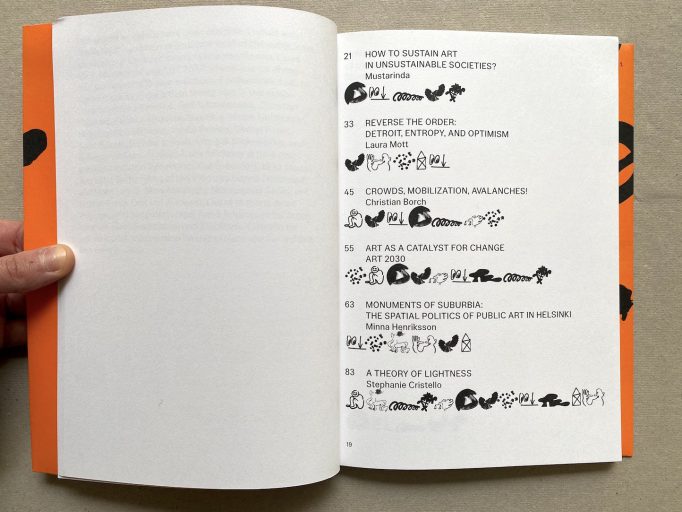 21 HOW TO SUSTAIN ART
IN UNSUSTAINABLE SOCIETIES?
Mustarinda
33 REVERSE THE ORDER:
DETROIT, ENTROPY, AND OPTIMISM
Laura Mott
45 CROWDS, MOBILIZATION, AVALANCHES!
Christian Borch
55 ART AS A CATALYST FOR CHANGE
ART 2030
63 MONUMENTS OF SUBURBIA:
THE SPATIAL POLITICS OF PUBLIC ART IN HELSINKI
Minna Henriksson
83 A THEORY OF LIGHTNESS
Stephanie Cristello
19